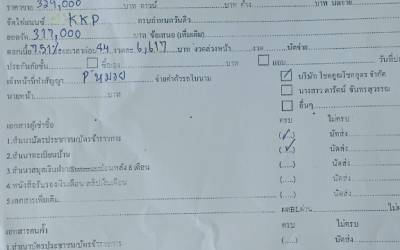 ราคาขาย 329,000 บาท ดาวน์ บาท ค้าง บาท นัดจ่าย
จัดไฟแนนซ์ KKP
ยอดจัด 317,000 บาท ข้อเสนอ (เพิ่มเติม)
ดอกเบี้ย 7.51% ระยะเวลาผ่อน 84 งวดละ 6,617 บาท งวดล่วงหน้า งวด นัดจ่าย
ประกันภัยชั้น ซื้อเอง บาท แถม วันที่
เจ้าหน้าที่ทำสัญญา P'หมวย จ่ายค่าคำรวจในนาม
นายหน้า บาท
บริษัท โชคคูณโชคกรุ๊ป จำกัด
นางสาว ดารัตน์ จันทรสุวรรณ
อื่นๆ
เอกสารผู้เช่าซื้อ ครบ ไม่ครบ
1.สำเนาบัตรประชาชน/บัตรข้าราชการ (/) นัดส่ง
2.สำเนาทะเบียนบ้าน (/) นัดส่ง
3.สำเนาสมุดเงินฝาก/Statementย้อนหลัง 6 เดือน (....) นัดส่ง
4.หนังสือรับรองเงินเดือน/สลิปเงินเดือน (....) นัดส่ง
5.เอกสารเพิ่มเติม (....) นัดส่ง
เอกสารคนค้ำ ครบ ไม่ครบ
1.สำเนาบัตรประชาชน/บัตรข้าราชการ (....) นัดส่ง